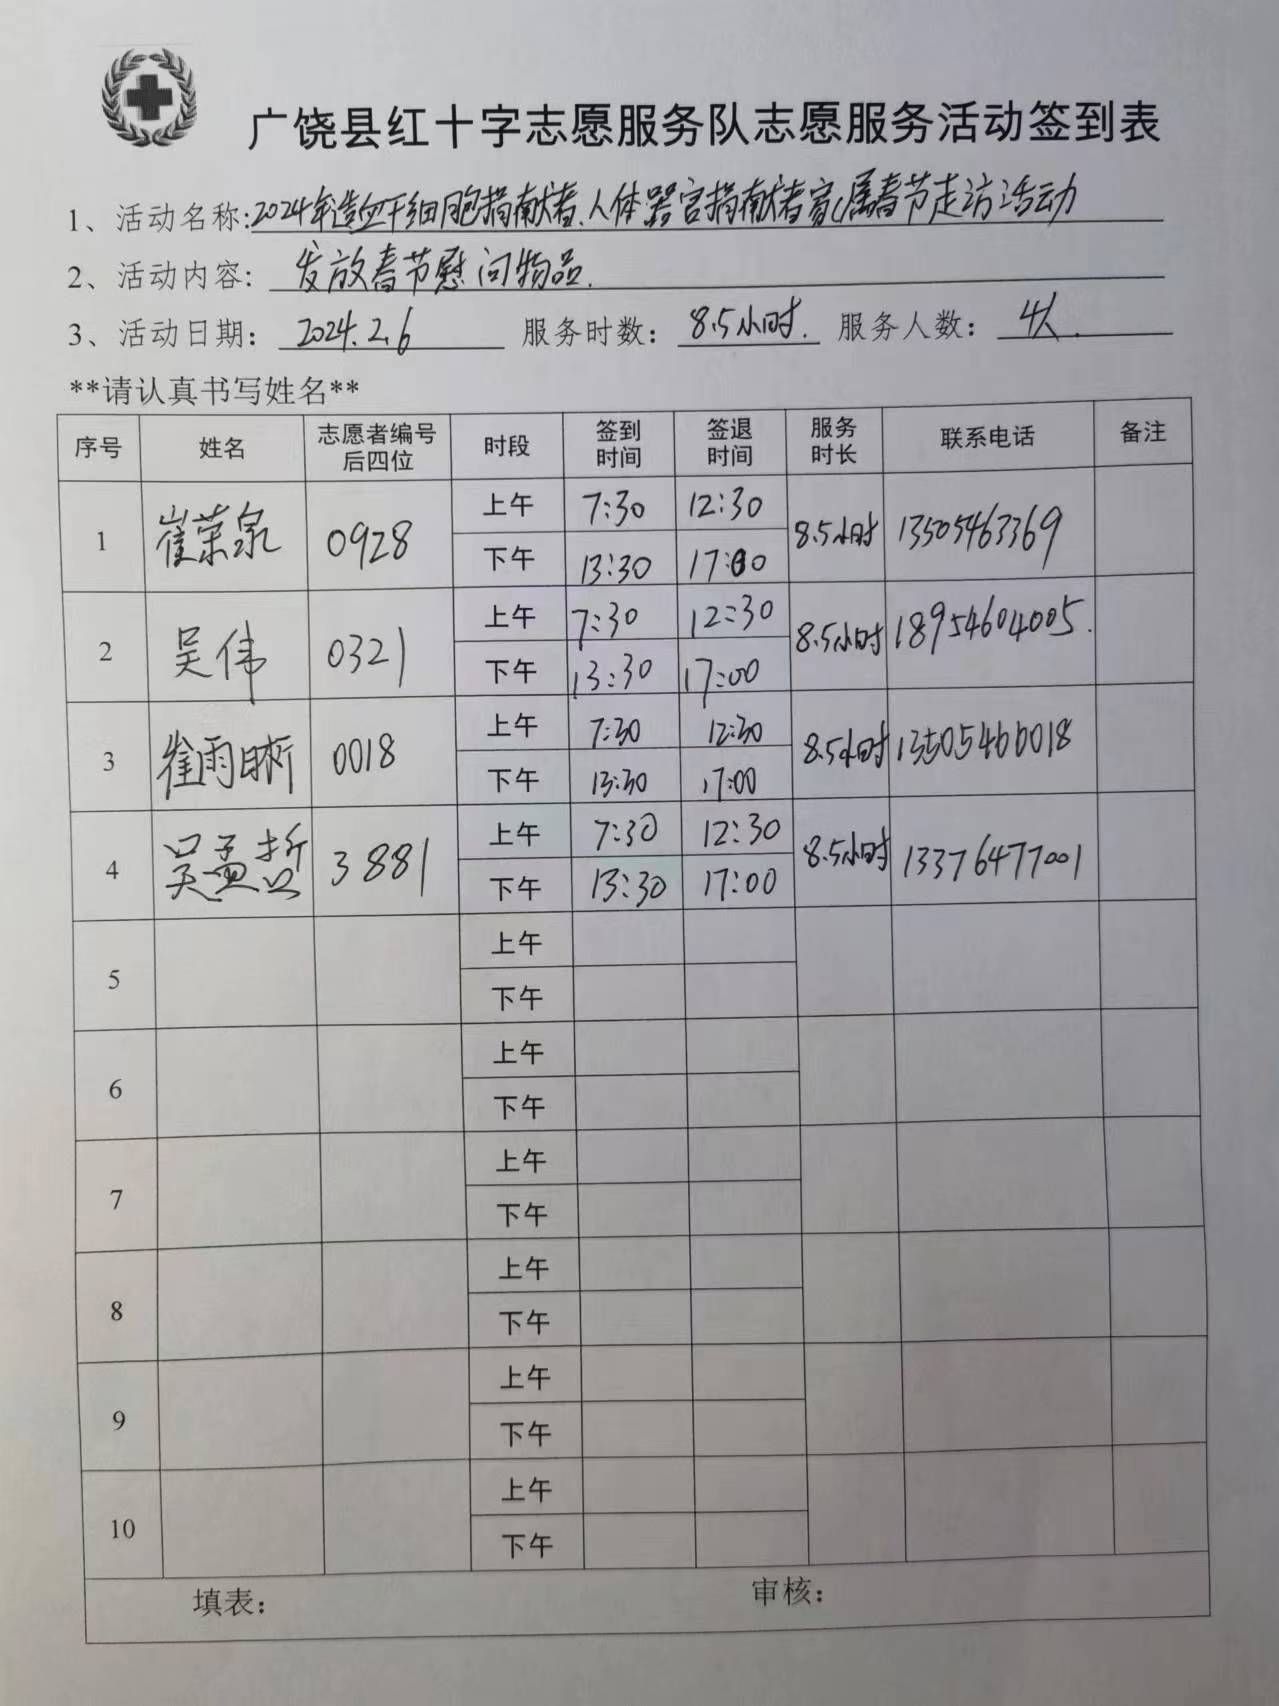 广饶县红十字志愿服务队志愿服务活动签到表
1、活动名称:2024年造血干细胞捐献者、人体器官捐献者家属春节走访活动
2、活动内容: 发放春节慰问物品.
3、活动日期: 2024.2.6 服务时数: 8.5小时. 服务人数: 4人.
**请认真书写姓名**
序号 姓名 志愿者编号后四位 时段 签到时间 签退时间 服务时长 联系电话 备注
1 崔荣泉 0928 上午 7:30 12:30 8.5小时 13505463369
下午 13:30 17:00
2 吴伟 0321 上午 7:30 12:30 8.5小时 18954604005.
下午 13:30 17:00
3 崔雨晰 0018 上午 7:30 12:30 8.5小时 13505460018
下午 13:30 17:00
4 吴孟哲 3881 上午 7:30 12:30 8.5小时 13376477001
下午 13:30 17:00
5 上午
下午
6 上午
下午
7 上午
下午
8 上午
下午
9 上午
下午
10 上午
下午
填表: 审核: